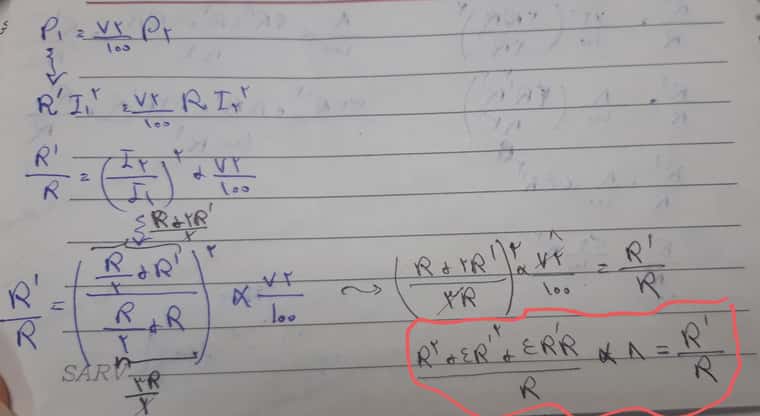 P₁ = ۷۲/۱۰۰ P۲
R' I₁^۲ = ۷۲/۱۰۰ R I۲^۲
R'/R = (I۲/I₁)^۲ × ۷۲/۱۰۰
(R + ۲R')/۲
R'/R = ((R/۲ + R')/(R/۲ + R))^۲ × ۷۲/۱۰۰ ⟿ ((R + ۲R')/(۳R))^۲ × ۷۲/۱۰۰ = R'/R
۸
SARV
۳R/۲
(R^۲ + ٤R'^۲ + ٤R'R)/R × ۸ = R'/R